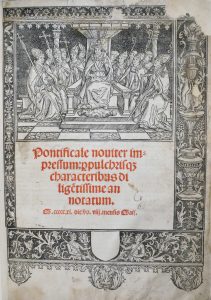 Pontificale nouiter im-
pressum: ꝑpulchrisqꝫ
characteribus di
ligẽtissime an
notatum.
M. ccccc.xi. die. vo. viij. mensis Maij.